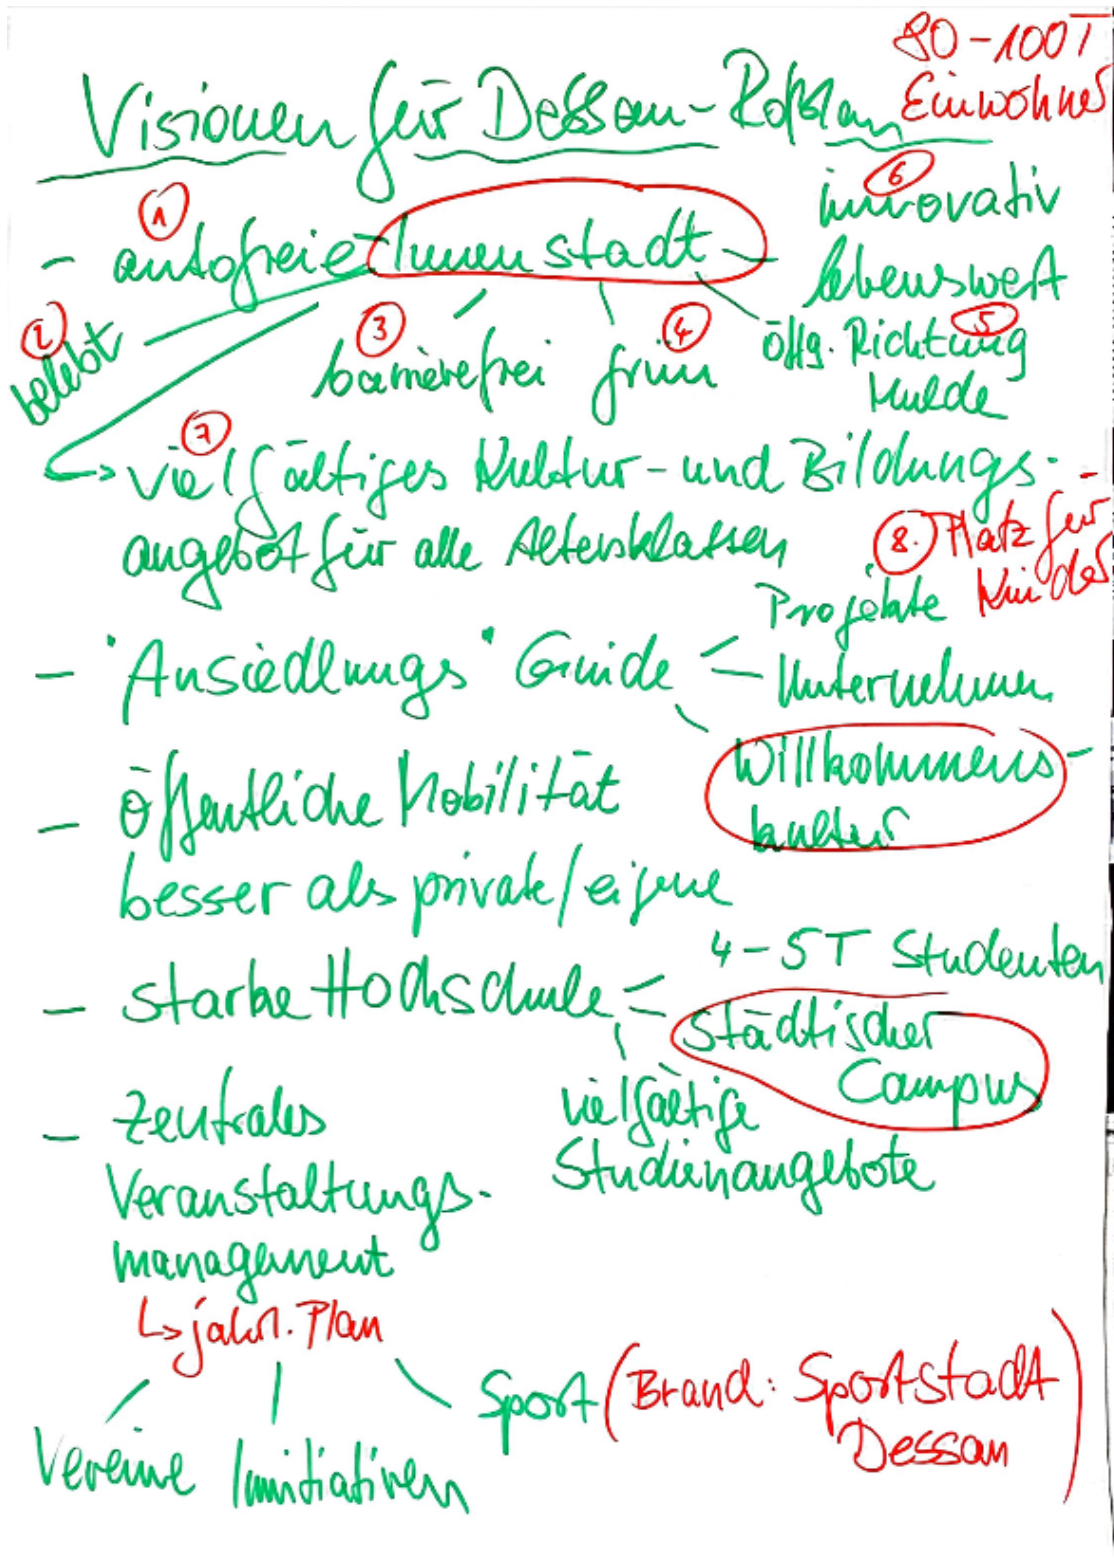 80-100T
Einwohner
Visionen für Dessau-Roßlau
- autofreie Innenstadt -
1
6
innovativ
lebenswert
2
belebt
3
barrierefrei
4
grün
5
öffg. Richtung
Mulde
7
vielfältiges Kultur- und Bildungs-
angebot für alle Altersklassen
8. Platz für
Kinder
- "Ansiedlungs" Guide
Projekte
Unternehmen
Willkommens-
kultur
- öffentliche Mobilität
besser als private/eigene
- starke Hochschule
4-5T Studenten
städtischer
Campus
vielfältige
Studienangebote
- zentrales
Veranstaltungs-
management
↳ jährl. Plan
Vereine
Initiativen
Sport (Brand: Sportstadt
Dessau)